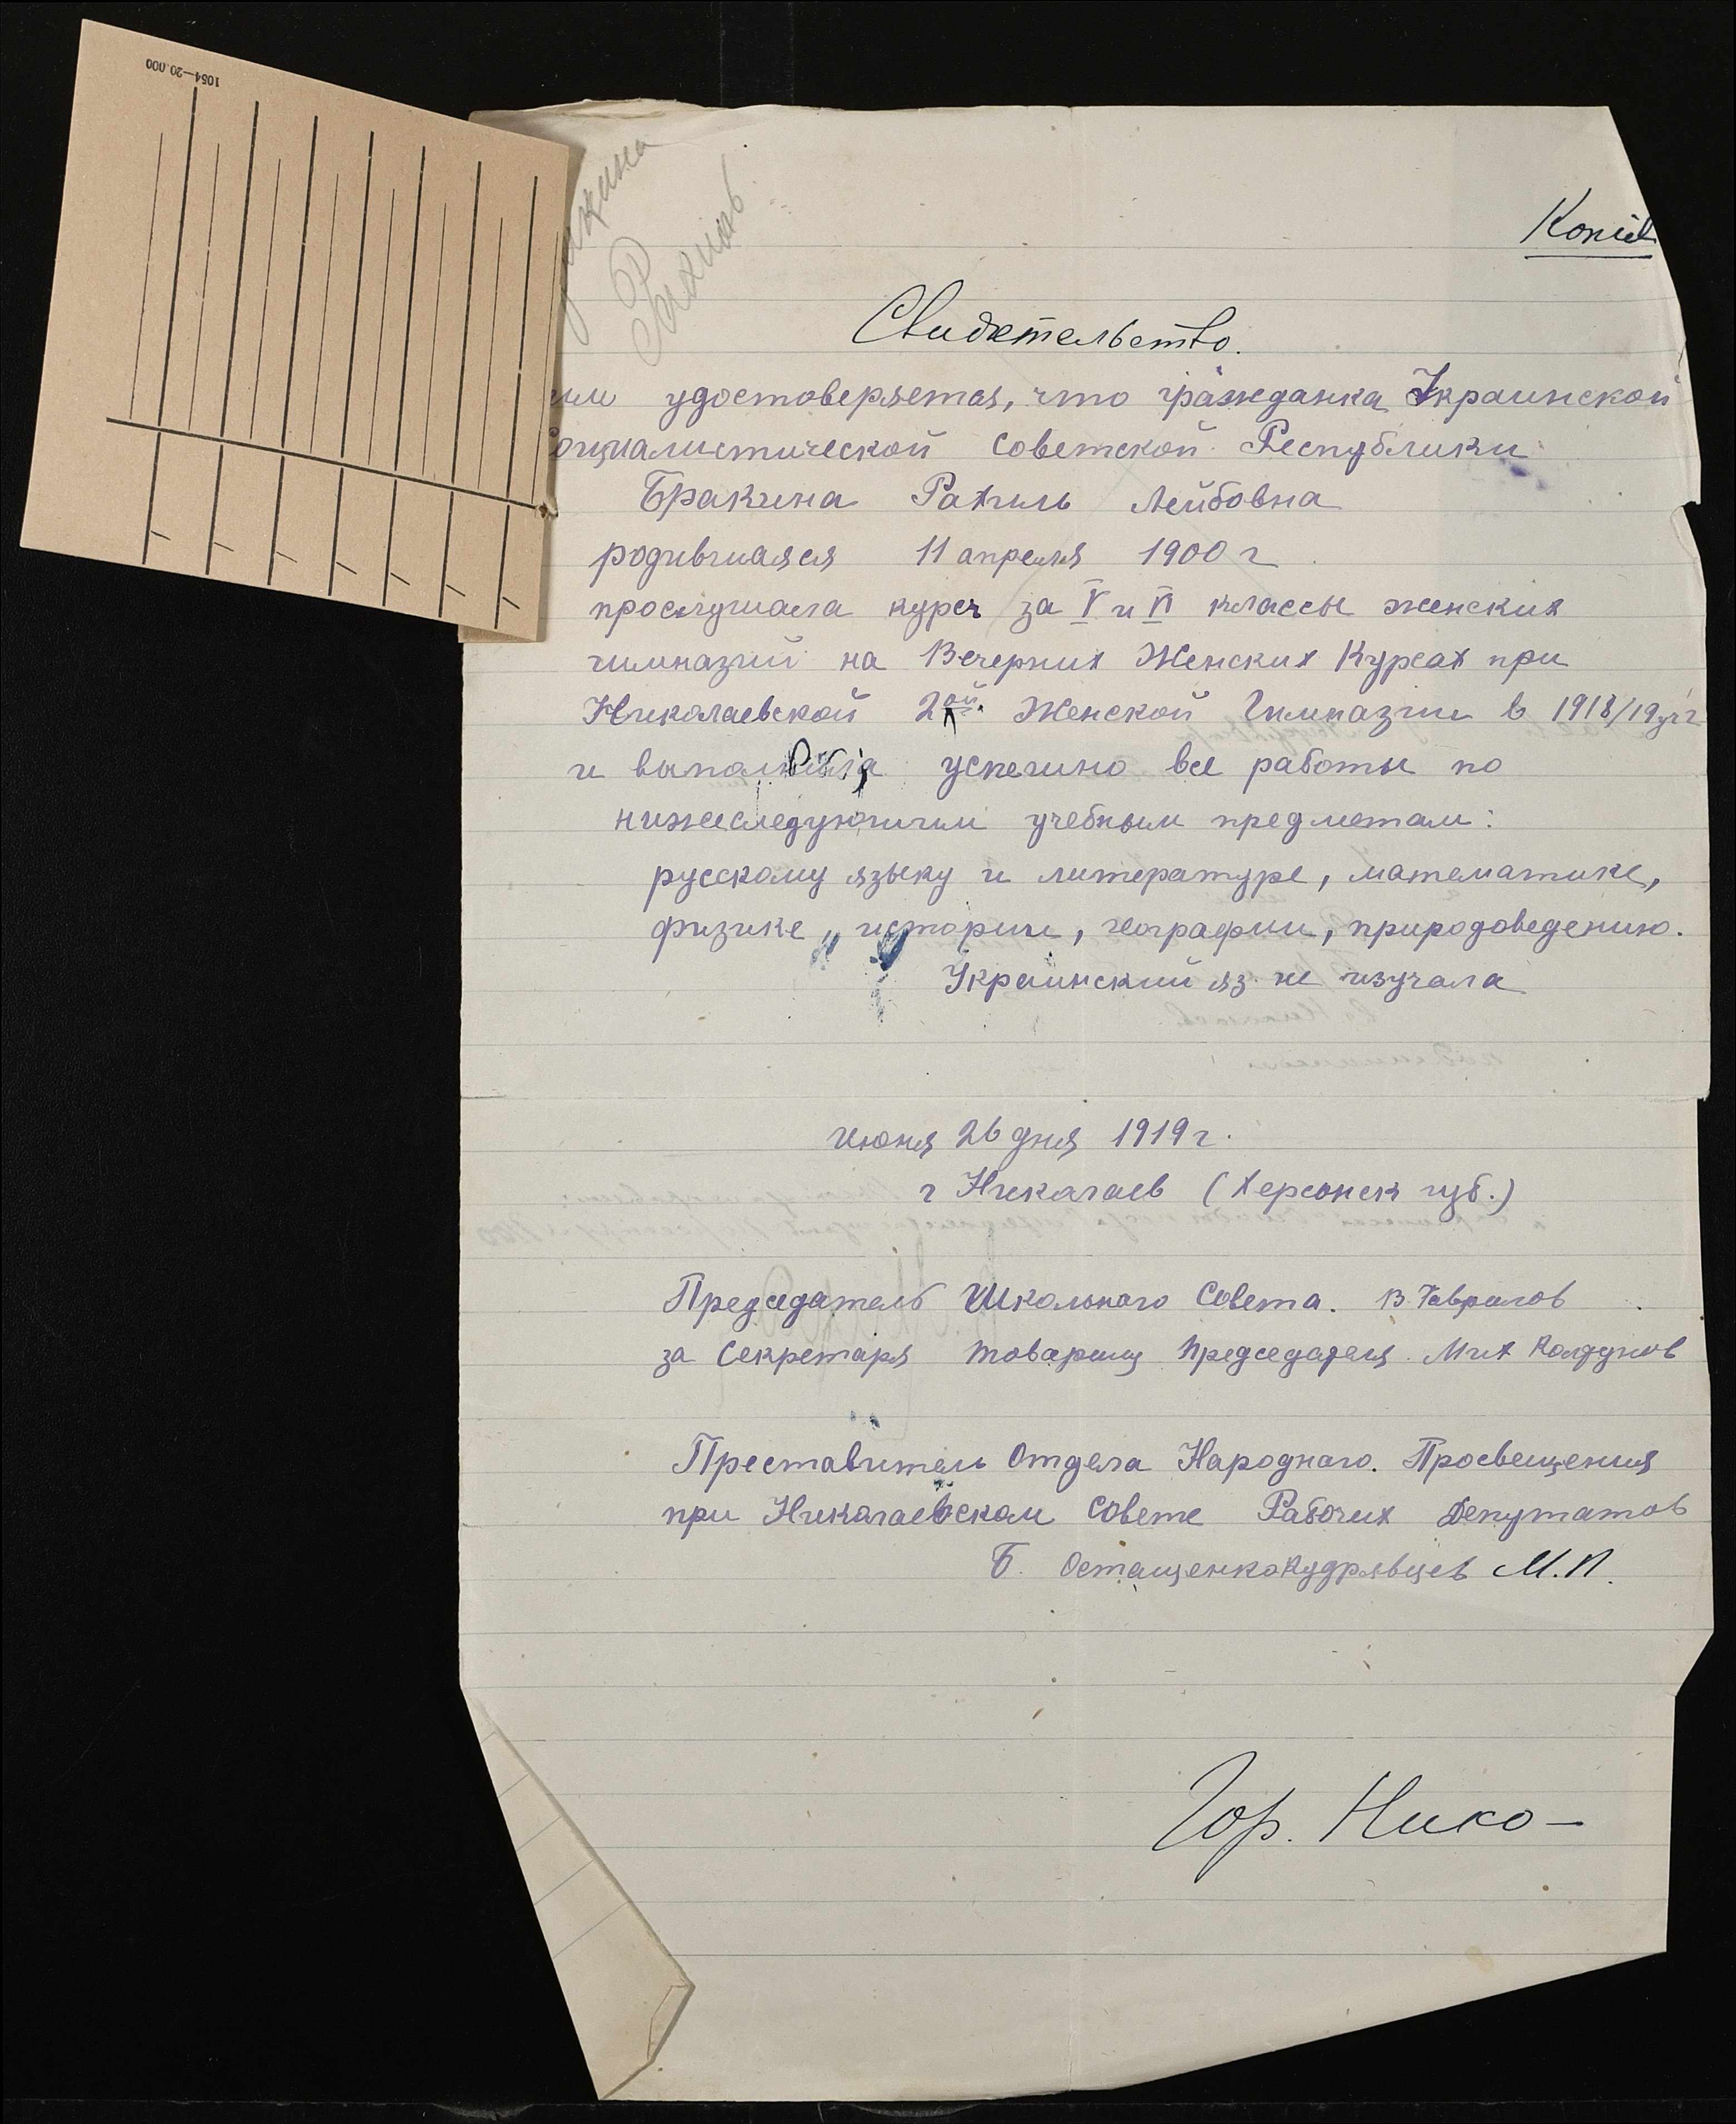 1054—20.000
Рахиль
Копія
Свидетельство.
удостоверяется, что гражданка Украинской
социалистической Советской Республики
Бракина Рахиль Лейбовна
родившаяся 11 апреля 1900 г
прослушала курсы за V и VI классы женских
гимназий на Вечерних Женских Курсах при
Николаевской 2ой Женской Гимназии в 1918/19 уч г
и выполнила успешно все работы по
нижеследующим учебным предметам:
русскому языку и литературе, математике,
физике, истории, географии, природоведению.
Украинский яз. не изучала
Июня 26 дня 1919 г.
г Николаев (Херсонск губ.)
Председатель Школьнаго Совета. В. Гаврилов
за Секретаря Товарищ Председателя Мих Колдунов
Преставитель Отдела Народнаго. Просвещения
при Николаевском Совете Рабочих Депутатов
Б. Остащенко Кудрявцев М.П.
Гор. Нико-